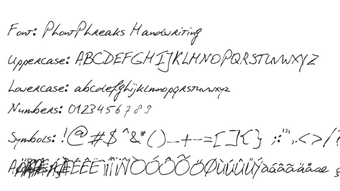 Font: PhontPhreaks Handwriting
Uppercase: ABCDEFGHIJKLMNOPQRSTUVWXYZ
Lowercase: abcdefghijklmnopqrstuvwxyz
Numbers: 0123456789
Symbols: !@#$^&*()_+-=[]{} ;:"',.<>/?